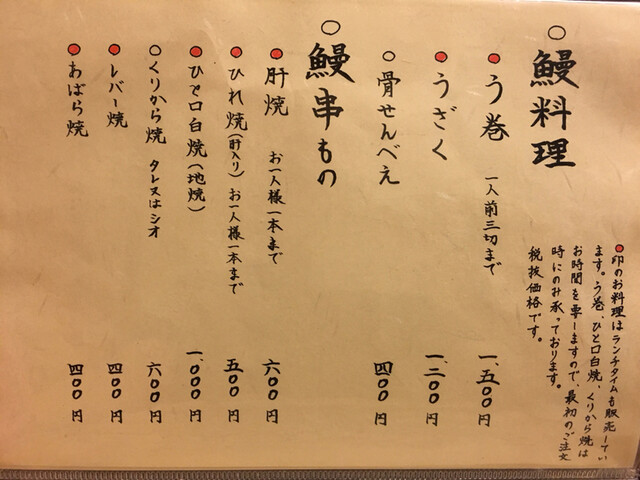 ○鰻料理
●印のお料理はランチタイムも販売してい
ます。う巻、ひと口白焼、くりから焼は
お時間を要しますので、最初のご注文
時にのみ承っております。
税抜価格です。
●う巻 一人前三切まで 一、五〇〇円
●うざく 一、二〇〇円
○骨せんべえ 四〇〇円
○鰻串もの
●肝焼 お一人様一本まで 六〇〇円
●ひれ焼(肝入り) お一人様一本まで 五〇〇円
●ひと口白焼(地焼) 一、〇〇〇円
○くりから焼 タレ又はシオ 六〇〇円
●レバー焼 四〇〇円
●あばら焼 四〇〇円